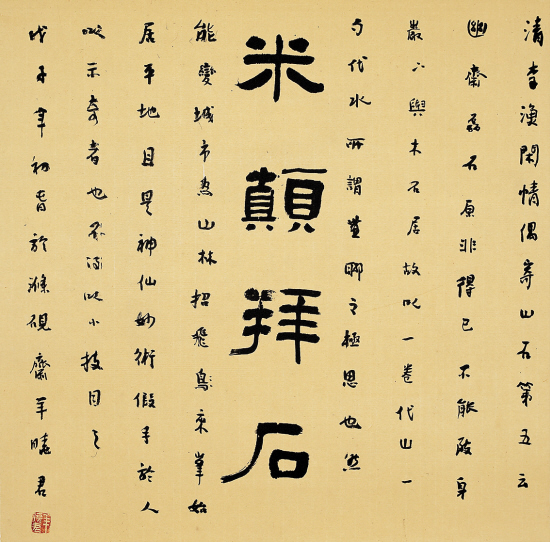 清李漁閑情偶寄山石第五云
幽齋磊石原非得已不能致身
巖下與木石居故以一卷代山一
勺代水所謂無聊之極思也然
米顛拜石
能變城市為山林招飛鳥來峯始
居平地自是神仙妙術假手於人
以示奇者也不得以小技目之
戊子年初春於滌硯齋羊曉君